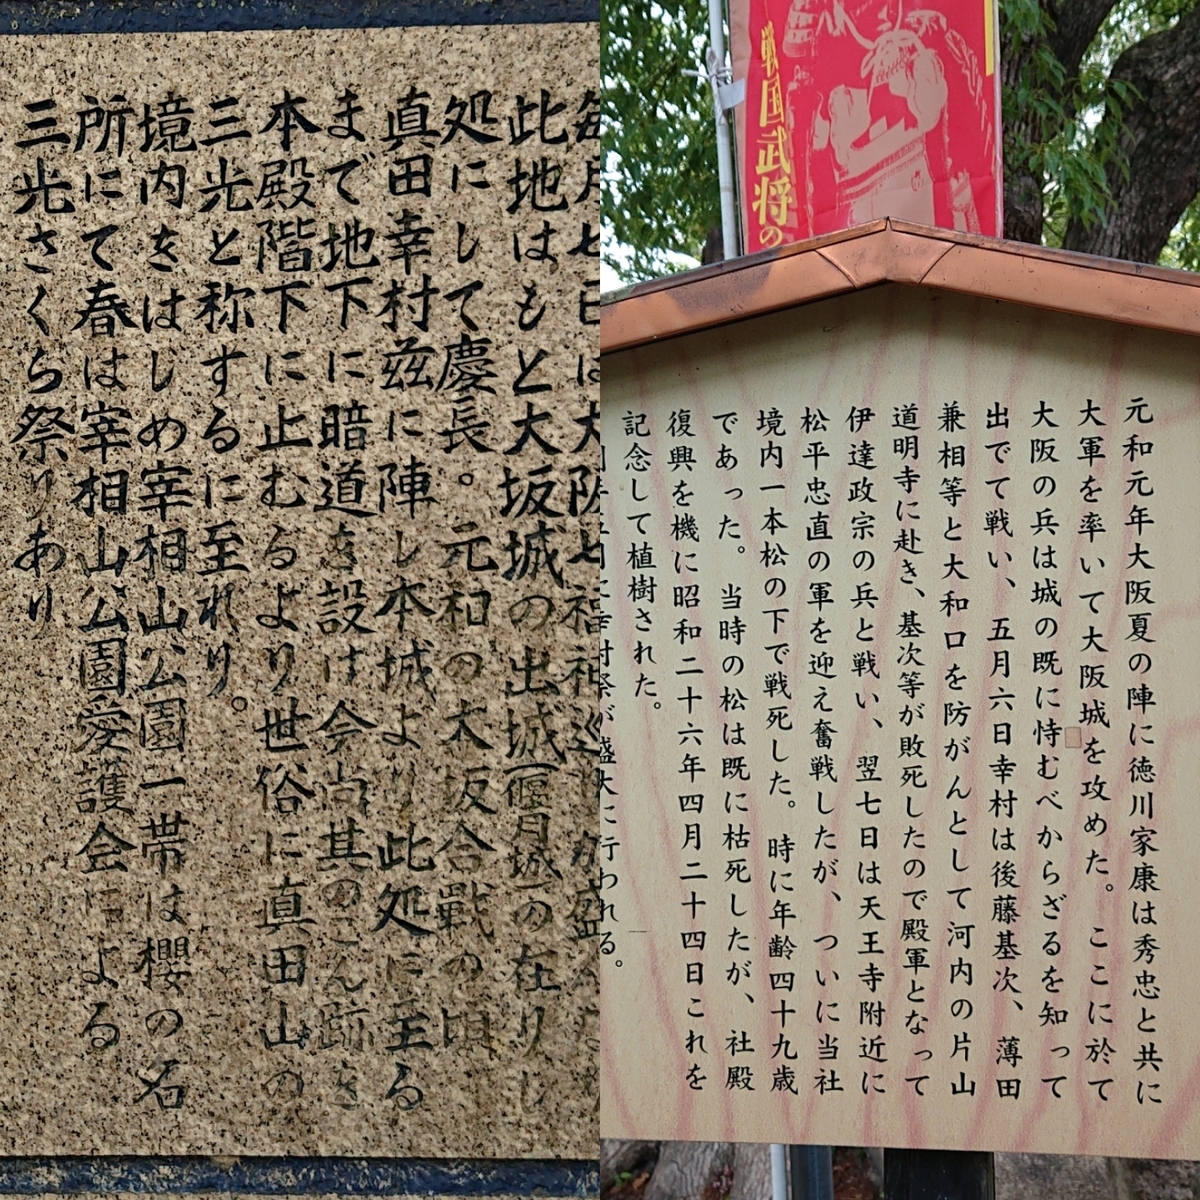 毎月七日は大阪七福神巡
此地はもと大坂城の出城(偃月城)の在りし
処にして慶長。元和の大坂合戦の頃
真田幸村茲に陣し本城より此処に至る
まで地下に暗道を設け今尚其のこん跡を
本殿階下に止むるより世俗に真田山の
三光と称するに至れり。
境内をはじめ宰相山公園一帯は櫻の名
所にて春は宰相山公園愛護会による
三光さくら祭りあり
戦国武将の
元和元年大阪夏の陣に徳川家康は秀忠と共に
大軍を率いて大阪城を攻めた。ここに於て
大阪の兵は城の既に恃むべからざるを知って
出でて戦い、五月六日幸村は後藤基次、薄田
兼相等と大和口を防がんとして河内の片山
道明寺に赴き、基次等が敗死したので殿軍となって
伊達政宗の兵と戦い、翌七日は天王寺附近に
松平忠直の軍を迎え奮戦したが、ついに当社
境内一本松の下で戦死した。時に年齢四十九歳
であった。当時の松は既に枯死したが、社殿
復興を機に昭和二十六年四月二十四日これを
記念して植樹された。
五月に幸村祭が盛大に行われる。